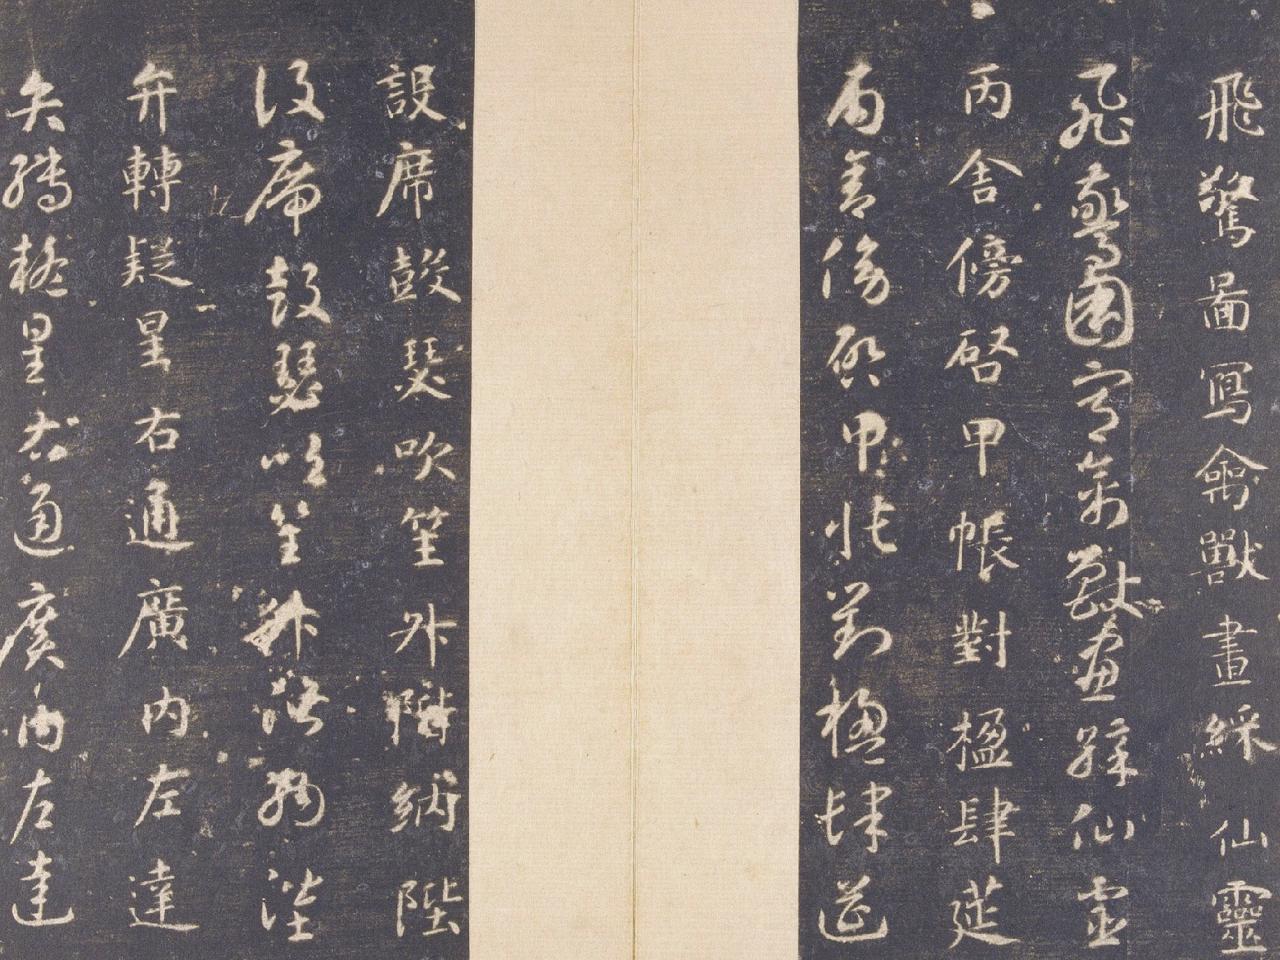 飛驚啚寫禽獸畫綵仙靈
飛驚圖寫禽獸畫綵仙靈
丙舍傍啓甲帳對楹肆莚
丙舍傍啓甲帳對楹肆莚
設席鼓瑟吹笙升階納陛
設席鼓瑟吹笙升階納陛
弁轉疑星右通廣内左達
弁轉疑星右通廣内左達